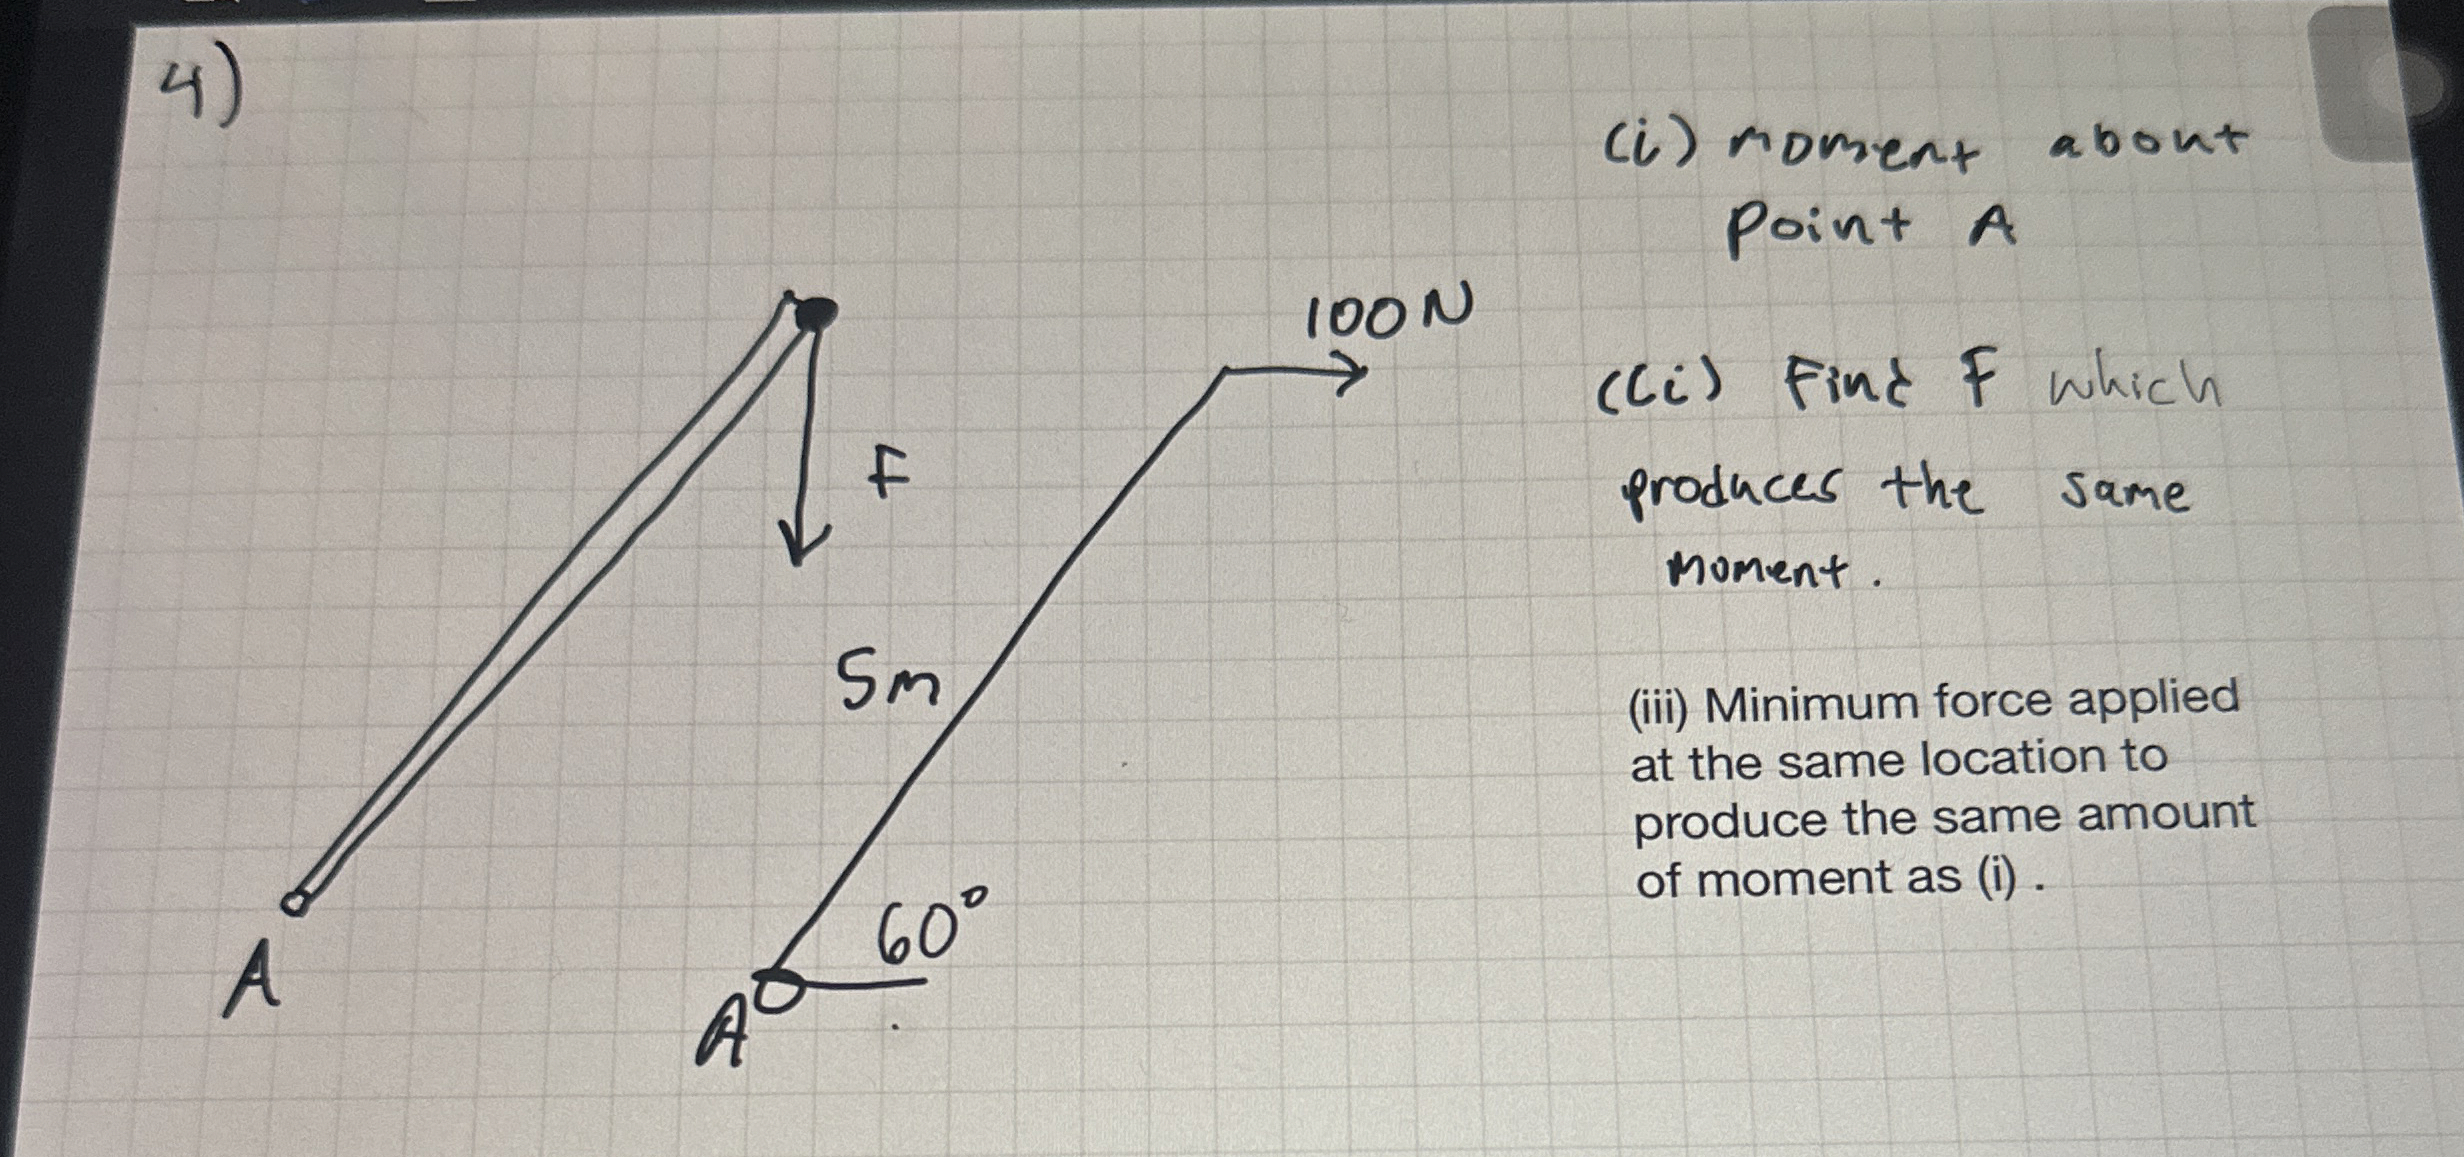 4)
(i) moment about
point A
100N
(ii) Find F which
F
produces the same
moment.
5m
(iii) Minimum force applied
at the same location to
produce the same amount
of moment as (i) .
60°
A
A